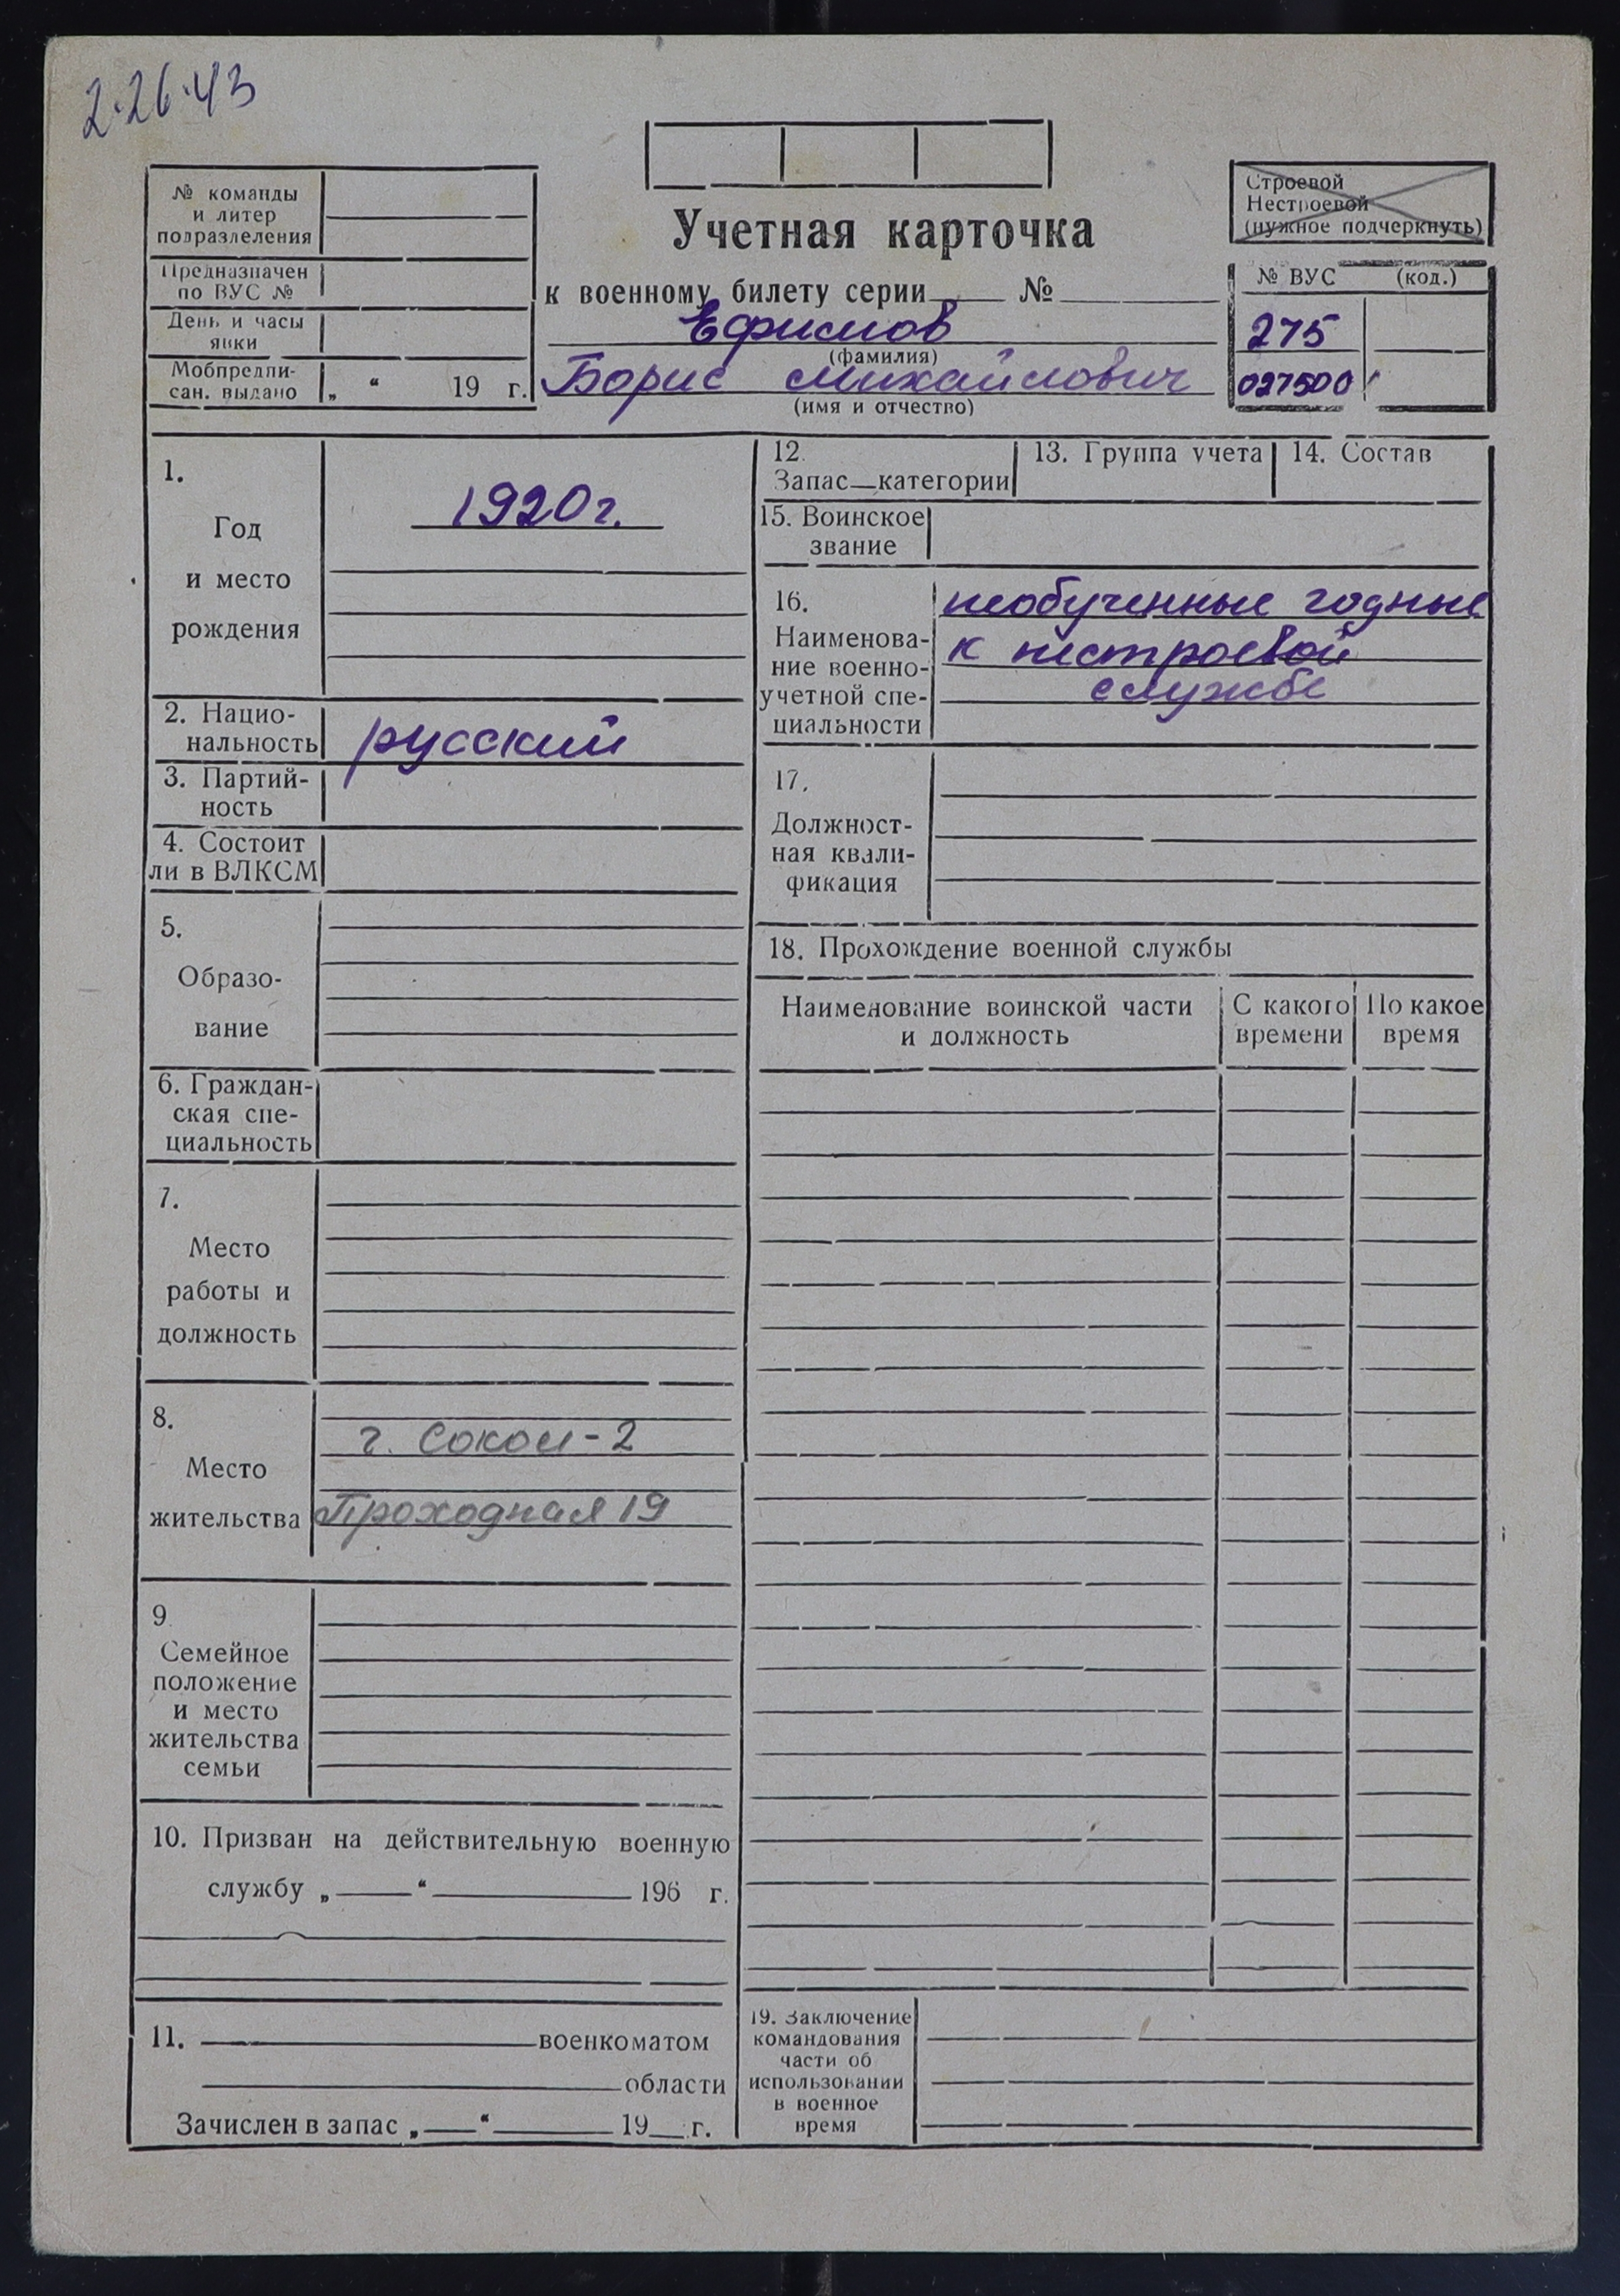 2.26.43
№ команды
и литер
подразделения
Предназначен
по ВУС №
День и часы
явки
Мобпредпи-
сан. выдано „ “ 19 г.
Учетная карточка
к военному билету серии № 
Ефимов
(фамилия)
Борис Михайлович
(имя и отчество)
Строевой
Нестроевой
(нужное подчеркнуть)
№ ВУС (код.)
275
027500
1.
Год
и место
рождения
1920 г.
2. Нацио-
нальность
русский
3. Партий-
ность
4. Состоит
ли в ВЛКСМ
5.
Образо-
вание
6. Граждан-
ская спе-
циальность
7.
Место
работы и
должность
8.
Место
жительства
г. Сокол-2
Проходная 19
9.
Семейное
положение
и место
жительства
семьи
10. Призван на действительную военную
службу „ “ 196 г.
11. военкоматом
области
Зачислен в запас „ “ 19 г.
12.
Запас—категории
13. Группа учета
14. Состав
15. Воинское
звание
16.
Наименова-
ние военно-
учетной спе-
циальности
необученные годные
к нестроевой
службе
17.
Должност-
ная квали-
фикация
18. Прохождение военной службы
Наименование воинской части
и должность
С какого
времени
По какое
время
19. Заключение
командования
части об
использовании
в военное
время